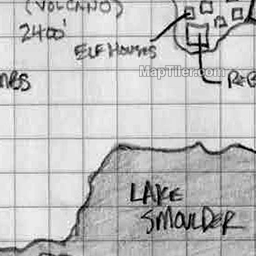 (VOLCANO)
2400'
ELF HOUSES
MapTiler.com
LAKE
SMOULDER